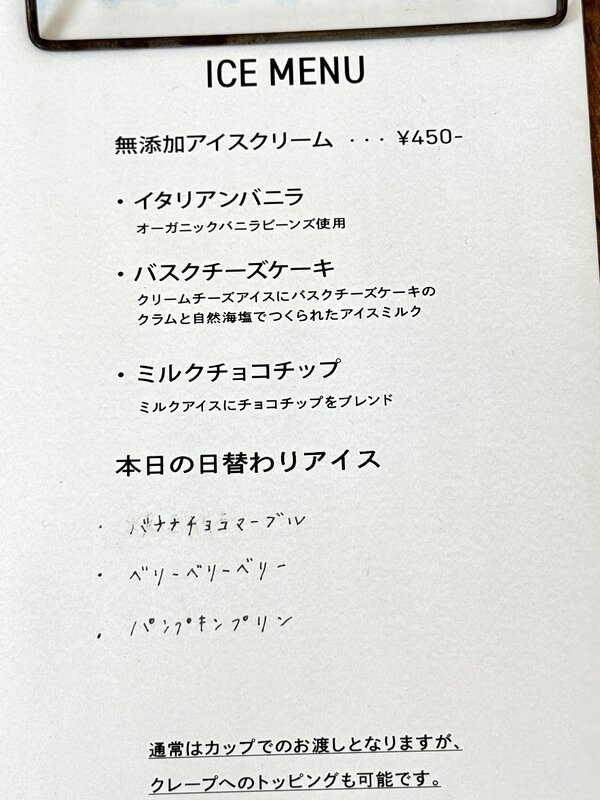 ICE MENU
無添加アイスクリーム ・・・ ¥450-
・イタリアンバニラ
オーガニックバニラビーンズ使用
・バスクチーズケーキ
クリームチーズアイスにバスクチーズケーキの
クラムと自然海塩でつくられたアイスミルク
・ミルクチョコチップ
ミルクアイスにチョコチップをブレンド
本日の日替わりアイス
・バナナチョコマーブル
・ベリーベリーベリー
・パンプキンプリン
通常はカップでのお渡しとなりますが、
クレープへのトッピングも可能です。